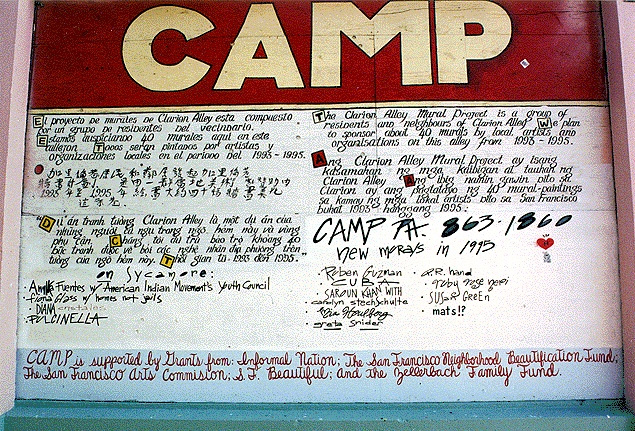 CAMP
El proyecto de murales de Clarion Alley esta compuesto
por un grupo de residentes del vecindario.
Estamos auspiciando 40 murales aqui en este
callejon. Todos seran pintados por artistas y
organizaciones locales en el periodo del 1993-1995.
The Clarion Alley Mural Project is a group of
residents and neighbours of Clarion Alley. We plan
to sponsor about 40 murals by local artists and
organisations on this alley from 1993-1995.
Ang Clarion Alley Mural Project ay isang
kasamahan ng mga kaibigan at tauhan ng
Clarion Alley. Ang ibig nahin gawin dito sa
Clarion ay ang pagtatapo ng 40 mural-paintings
sa kamay ng mga lokal artists dito sa San Francisco
buhat 1993 hanggang 1995.
"Dự án tranh tường Clarion Alley là một dự án của
những người cư ngụ trong ngõ hẻm này và vùng
phụ cận. Chúng tôi đã trù bảo trợ khoảng 40
bức tranh được vẽ bởi các nghệ nhân địa phương trên
tường của ngõ hẻm này. Thời gian từ 1993 đến 1995".
CAMP PH. 863-1860
new morays in 1995
on Sycamore:
Fuentes w/ American Indian Movement's Youth Council
fiona glass w/ homes not jails
DIANA
PULCINELLA
Ruben Guzman
CUBA
SAROUN KHAN WITH
carolyn stechschulte
greta snider
O.R. hand
ruby rose neri
SUSAN GREEN
mats!?
CAMP is supported by Grants from: Informal Nation; The San Francisco Neighborhood Beautification Fund;
The San Francisco Arts Commision; S.F. Beautiful; and the Zellerbach Family Fund.